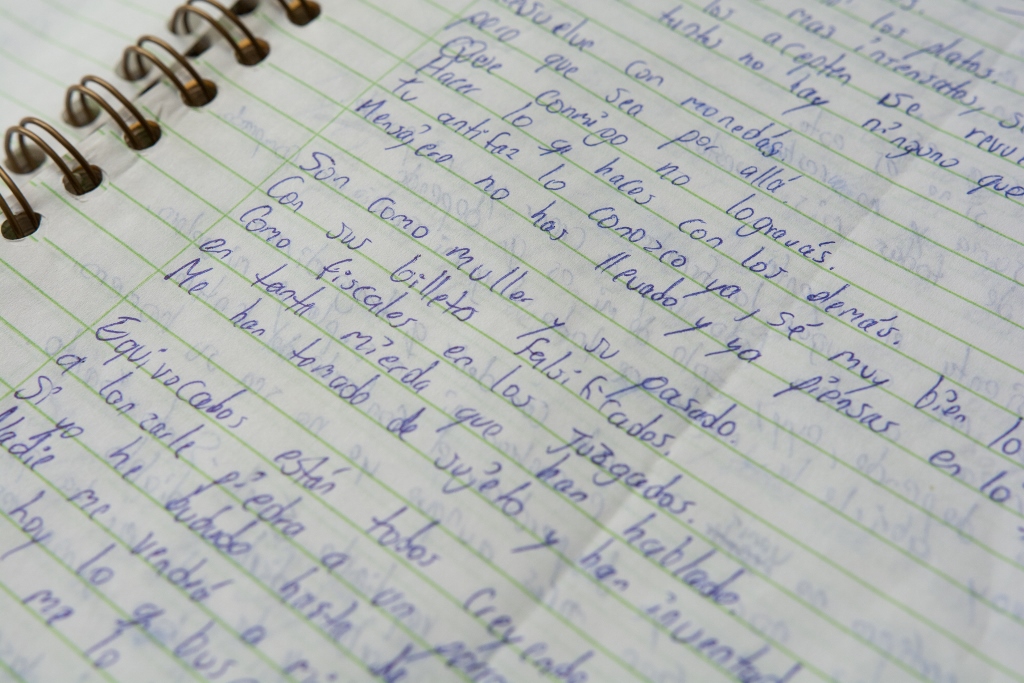 los platos.
mas insensatos, se
los acepten se revu
tuntos no hay ninguno que
con monedas
pero que sea por allá.
Que conmigo no lograrás.
Hacer lo q haces con los demás.
tu antifaz lo conozco ya, sé muy bien lo
Mensajero no has llevado y ya piensas en lo
Son como muller y su pasado.
Con sus billetes falsificados.
Como fiscales en los Juzgados.
en tanta mierda que han hablado.
Me han tomado de sujeto y han inventad
Equivocados están todos creyendo
a lanzarle piedra a un
Si yo he hasta de
Nadie me vendrá a
hoy lo q bus
me lo